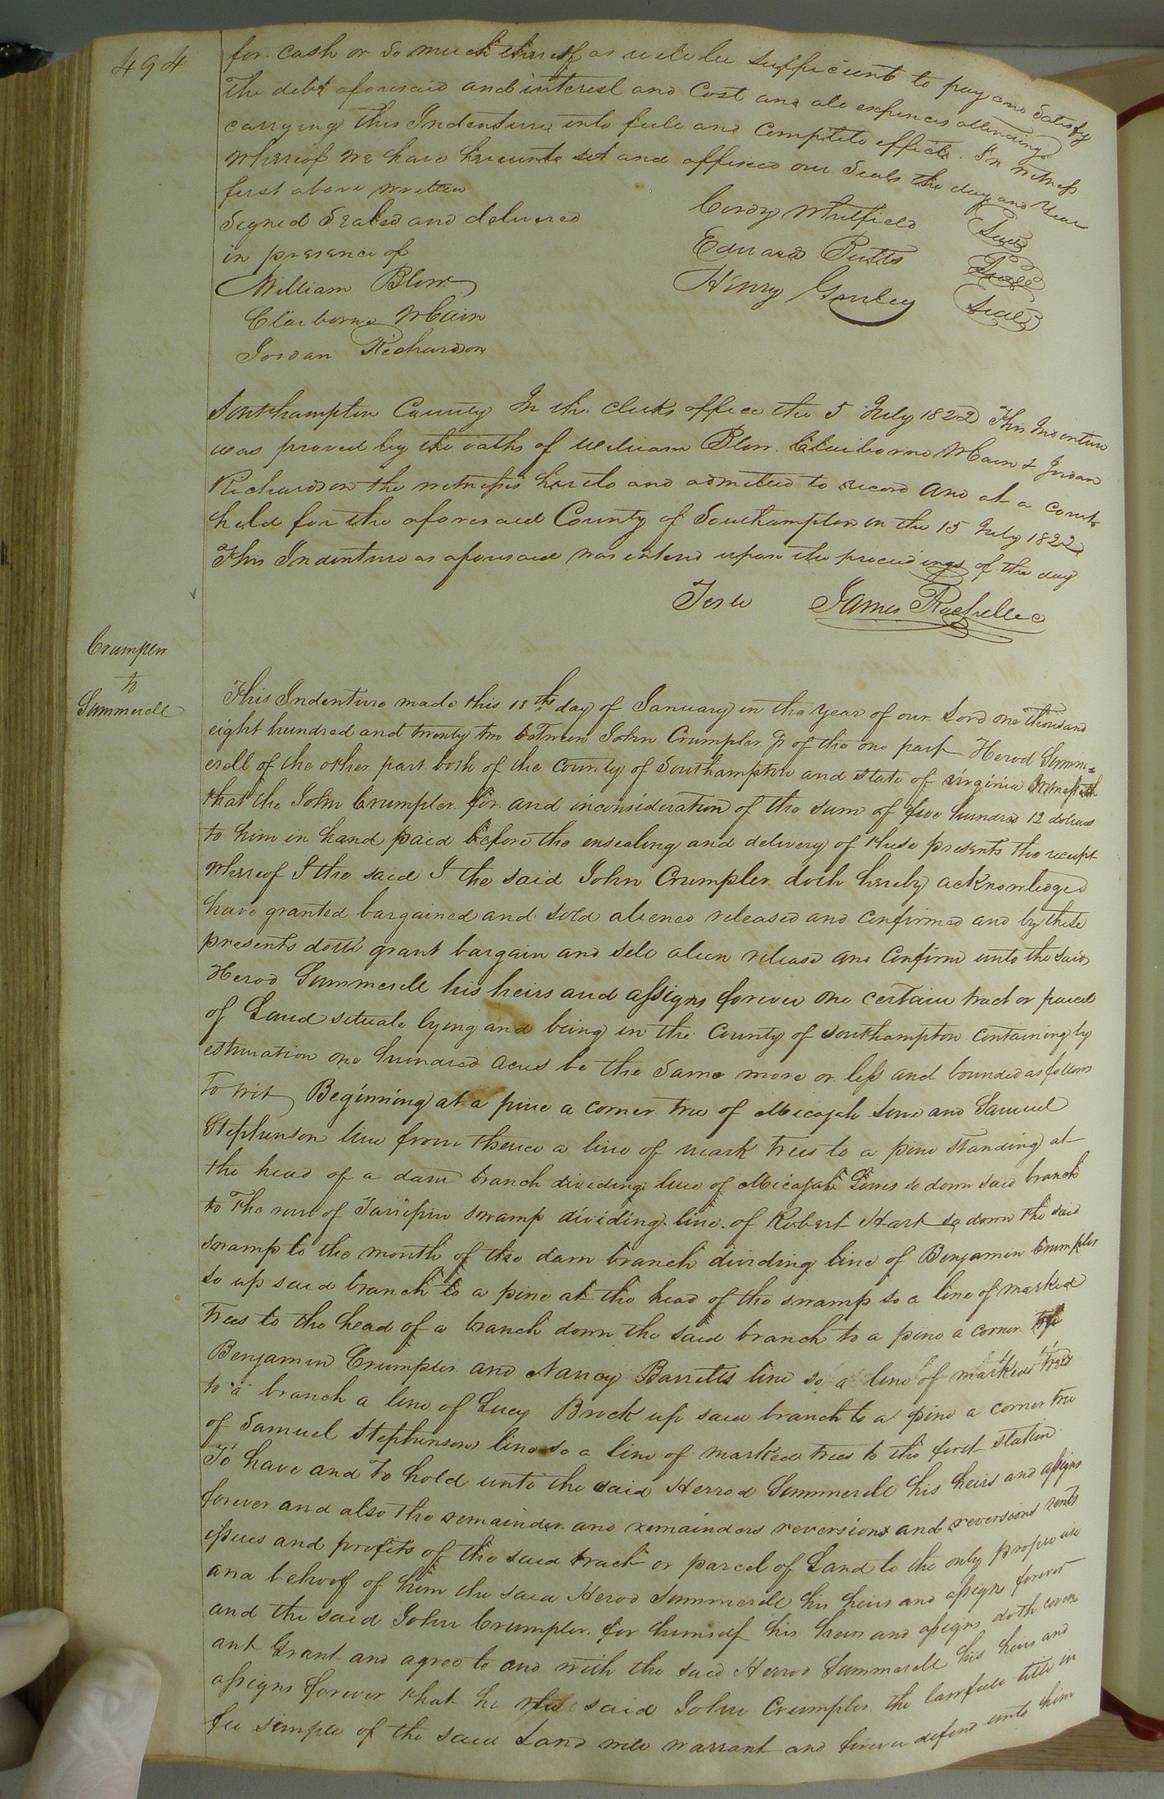 494
for cash or so much thereof as will be sufficient to pay and satisfy
the debt aforesaid and interest and Cost and all expences attending
carrying this Indenture into full and complete effect. In witness
whereof we have hereunto set and affixed our Seals the day and Year
first above written
Signed Sealed and delivered
in presence of
Cordy Whitfield Seal
Edward Butts Seal
Henry Gurley Seal
William Blow
Claiborne Main
Jordan Richardson
Southampton County In the clerks office the 5 July 1822 This Indenture
was proved by the oaths of William Blow Claiborne Main & Jordan
Richardson the witnesses hereto and admitted to record And at a Court
held for the aforesaid County of Southampton on the 15 July 1822
This Indenture as aforesaid was entered upon the proceedings of the day
Teste James Rochelle C
Crumpler
to
Summerell
This Indenture made this 18th day of January in the year of our Lord one Thousand
eight hundred and twenty two between John Crumpler of the one part Herod Summ=
erell of the other part both of the County of Southampton and state of virginia
that the John Crumpler for and inconsideration of the sum of five hundred 12 dollars
to him in hand paid before the ensealing and delivery of these presents the receipt
Whereof I the said I the said John Crumpler doth hereby acknowledged
have granted bargained and sold aliened released and confirmed and by these
presents doth grant bargain and sell alien release and Confirm unto the said
Herod Summerell his heirs and assigns forever One certain tract or parcel
of Land situate lying and being in the County of southampton containing by
estimation one hundred acres be the same more or less and bounded as follows
To wit Beginning at a pine a corner tree of Micajah Lows and Samuel
Stephenson line from thence a line of mark trees to a pine standing at
the head of a dam branch dividing line of Micajah Lows so down said branch
to The run of Tarripin swamp dividing line of Robert Hart so down the said
swamp to the mouth of the dam branch dividing line of Benjamin Crumpler
so up said branch to a pine at the head of the swamp so a line of marked
trees to the head of a branch down the said branch to a pine a corner tree
Benjamin Crumpler and Nancy Barretts line so a line of marked trees
to a branch a line of Lucy Brock up said branch to a pine a corner tree
of Samuel Stephenson line so a line of marked trees to the first station
To have and to hold unto the said Herrod Summerell his heirs and assigns
forever and also the remainder and remainders reversions and reversions rents
issues and profits of the said tract or parcel of Land to the only proper use
and behoof of him the said Herod Summerell his heirs and assigns forever
and the said John Crumpler for himself his heirs and assigns doth coven
ant Grant and agree to and with the said Herrod Summerell his heirs and
assigns forever that he the said John Crumpler the lawfull title in
fee simple of the said Land will warrant and forever defend unto him